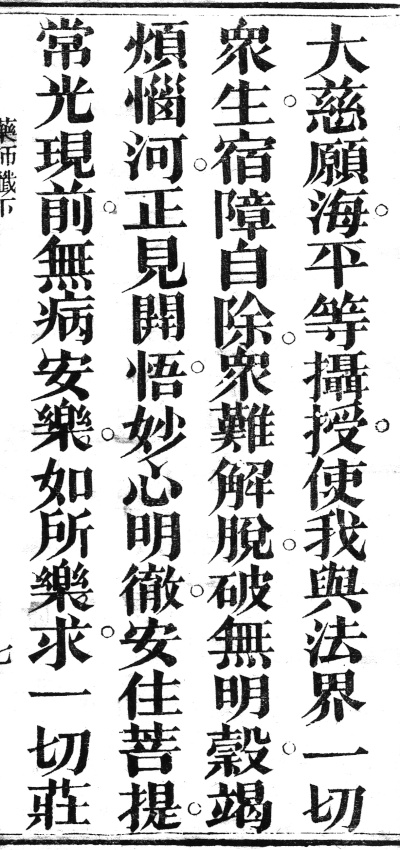 大慈願海。平等攝授。使我與法界一切
眾生。宿障自除。眾難解脫。破無明穀。竭
煩惱河。正見開悟。妙心明徹。安住菩提。
常光現前。無病安樂。如所樂求。一切莊
藥師懺下
七